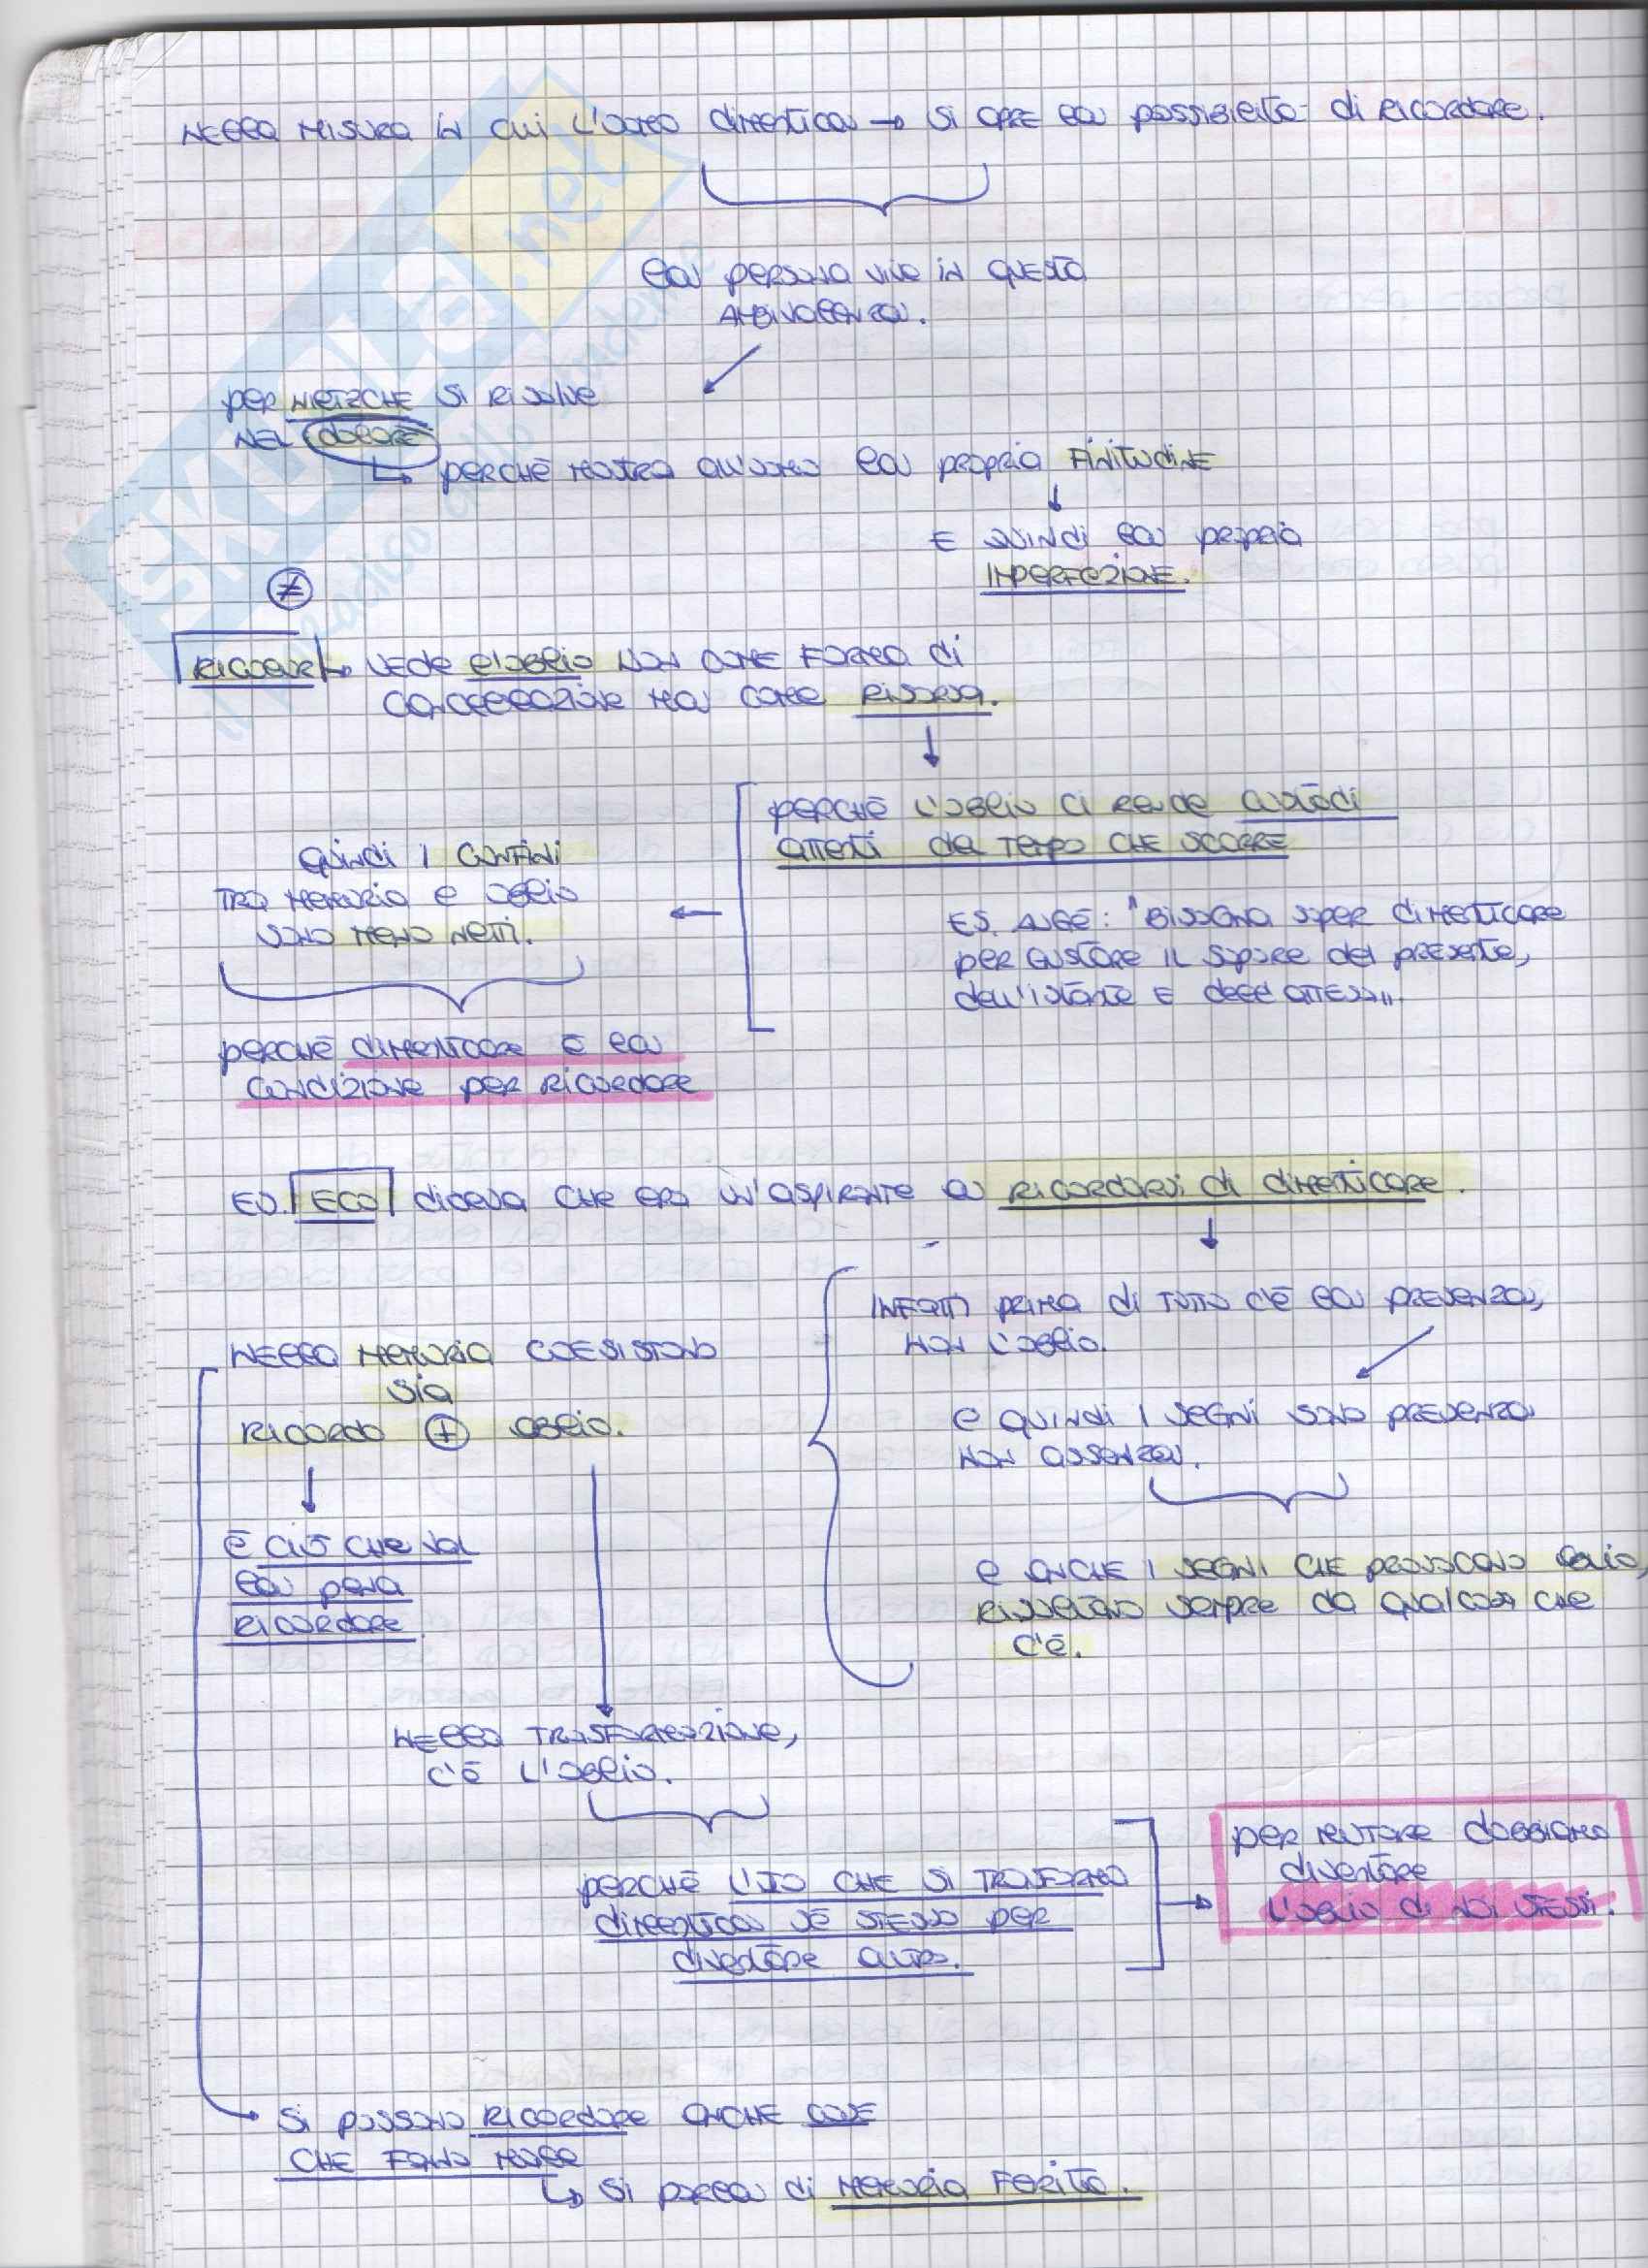 NELLA MISURA IN CUI L'UOMO DIMENTICA → SI APRE LA POSSIBILITÀ DI RICORDARE.
LA PERSONA VIVE IN QUESTA
AMBIVALENZA.
PER NIETZCHE SI RISOLVE
NEL DOLORE
↳ PERCHÈ MOSTRA ALL'UOMO LA PROPRIA FINITUDINE
↓
E QUINDI LA PROPRIA
IMPERFEZIONE.
≠
RICOEUR → VEDE L'OBLIO NON COME FORMA DI
CANCELLAZIONE MA COME RISORSA.
↓
PERCHÈ L'OBLIO CI RENDE CUSTODI
ATTENTI DEL TEMPO CHE SCORRE
ES. AUGÈ: "BISOGNA SAPER DIMENTICARE
PER GUSTARE IL SAPORE DEL PRESENTE,
DELL'ISTANTE E DELL'ATTESA".
←
QUINDI I CONFINI
TRA MEMORIA E OBLIO
SONO MENO NETTI.
PERCHÈ DIMENTICARE È LA
CONDIZIONE PER RICORDARE
ES. ECO DICEVA CHE ERA UN'ASPIRANTE A RICORDARSI DI DIMENTICARE.
↓
INFATTI PRIMA DI TUTTO C'È LA PRESENZA,
NON L'OBLIO.
E QUINDI I SEGNI SONO PRESENZA
NON ASSENZA.
E ANCHE I SEGNI CHE PROVOCANO OBLIO,
RISULTANO SEMPRE DA QUALCOSA CHE
C'È.
NELLA MEMORIA COESISTONO
SIA
RICORDO + OBLIO.
↓
È CIÒ CHE VAL
LA PENA
RICORDARE.
NELLA TRASFORMAZIONE,
C'È L'OBLIO.
PERCHÈ L'IO CHE SI TRASFORMA
DIMENTICA SÈ STESSO PER
DIVENTARE ALTRO.
→ PER MUTARE DOBBIAMO
DIVENTARE
L'OBLIO DI NOI STESSI.
SI POSSONO RICORDARE ANCHE COSE
CHE FANNO MALE
↳ SI PARLA DI MEMORIA FERITA.
SKUOLA.net